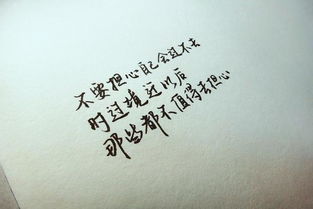 不要担心自己会过不去
时过境迁以后
那些都不值得去担心